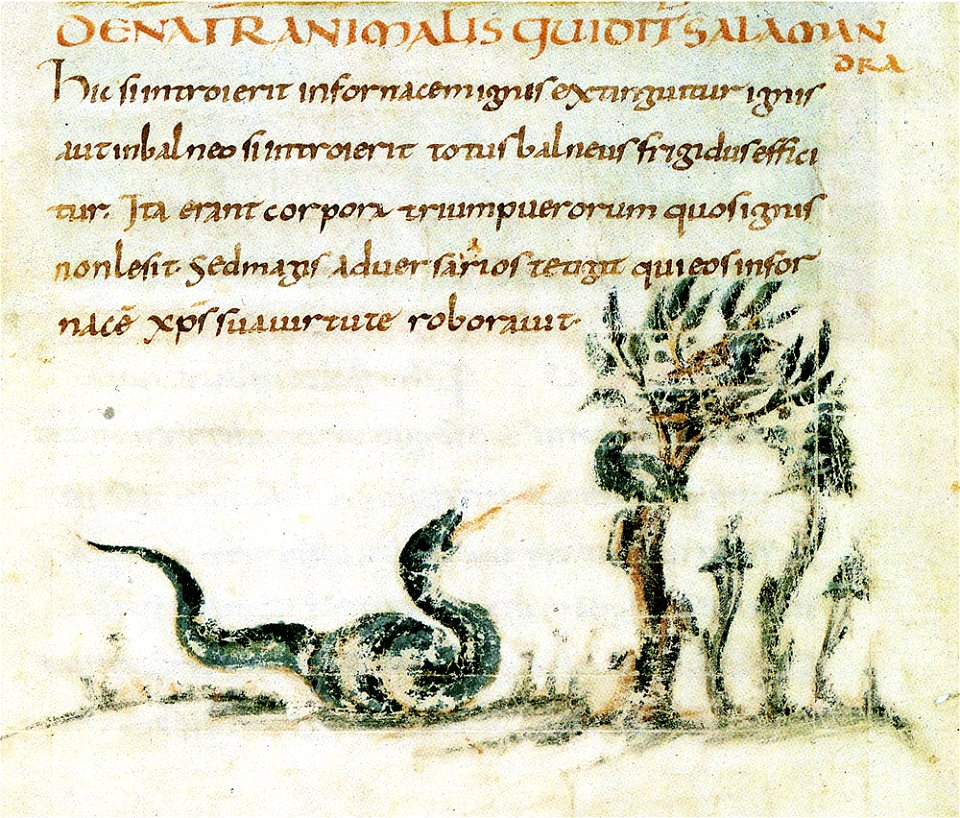 DENATR ANIMALIS QUIDIT̄ SALAMAN
DRA
Hic siintroierit infornacemignis extinguitur ignis
autinbalneo siintroierit totus balneus frigidus effici
tur. Ita erant corpora triumpuerorum quosignis
nonlesit. Sedmagis aduersarios tetigit quieosinfor
nacē xp̄s suauirtute roborauit.